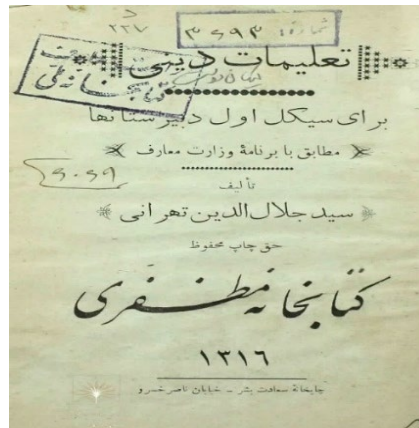 د
۲۲۷
شماره ۳۶۹۳
تعلیمات دینی
کتابخانه ملی
برای سیکل اول دبیرستانها
مطابق با برنامهٔ وزارت معارف
تألیف
سید جلال‌الدین تهرانی
حق چاپ محفوظ
کتابخانه مظفری
۱۳۱۶
چاپخانهٔ سعادت بشر ــ خیابان ناصرخسرو